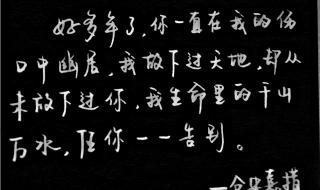 好多年了，你一直在我的伤
口中幽居，我放下过天地，却从
未放下过你，我生命里的千山
万水，任你一一告别。
——仓央嘉措